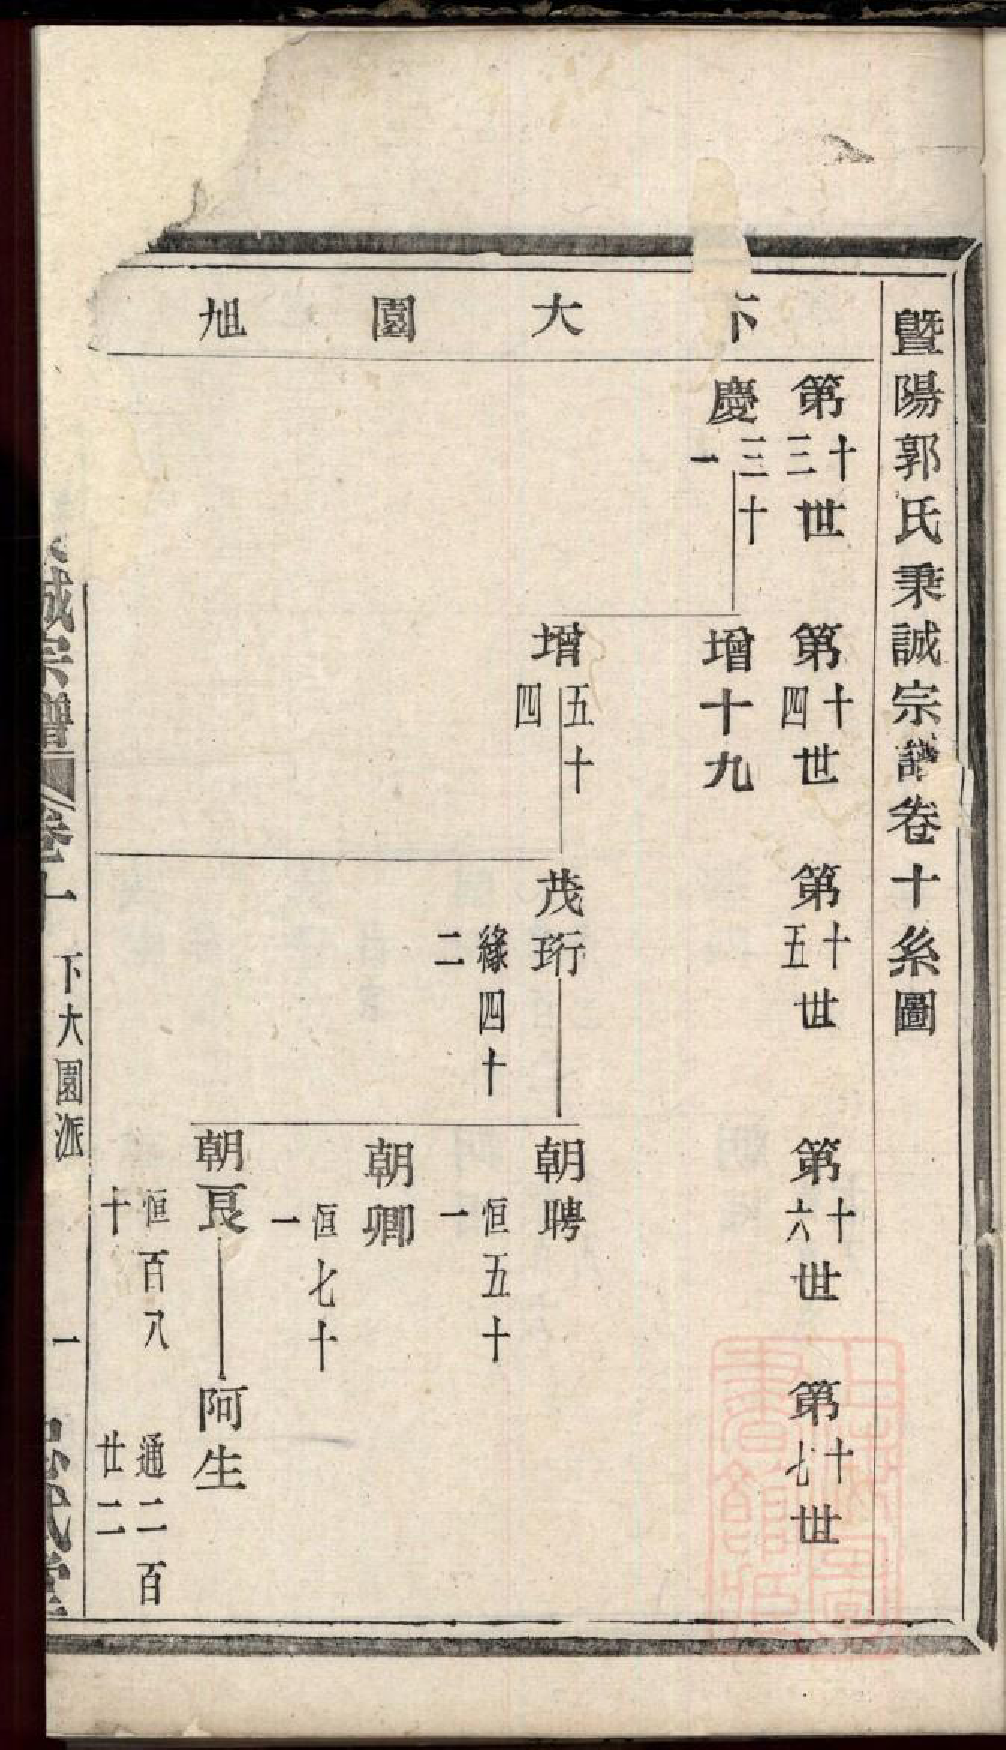 暨陽郭氏秉誠宗譜卷十系圖
下大園旭
第十三世
第十四世
第十五世
第十六世
第十七世
慶三十一
增十九
增五十四
茂珩
緣四十二
朝聘
恒五十一
朝卿
恒七十一
朝艮
恒百八十
阿生
通二百廿二
誠宗譜
卷十
下大園派
一